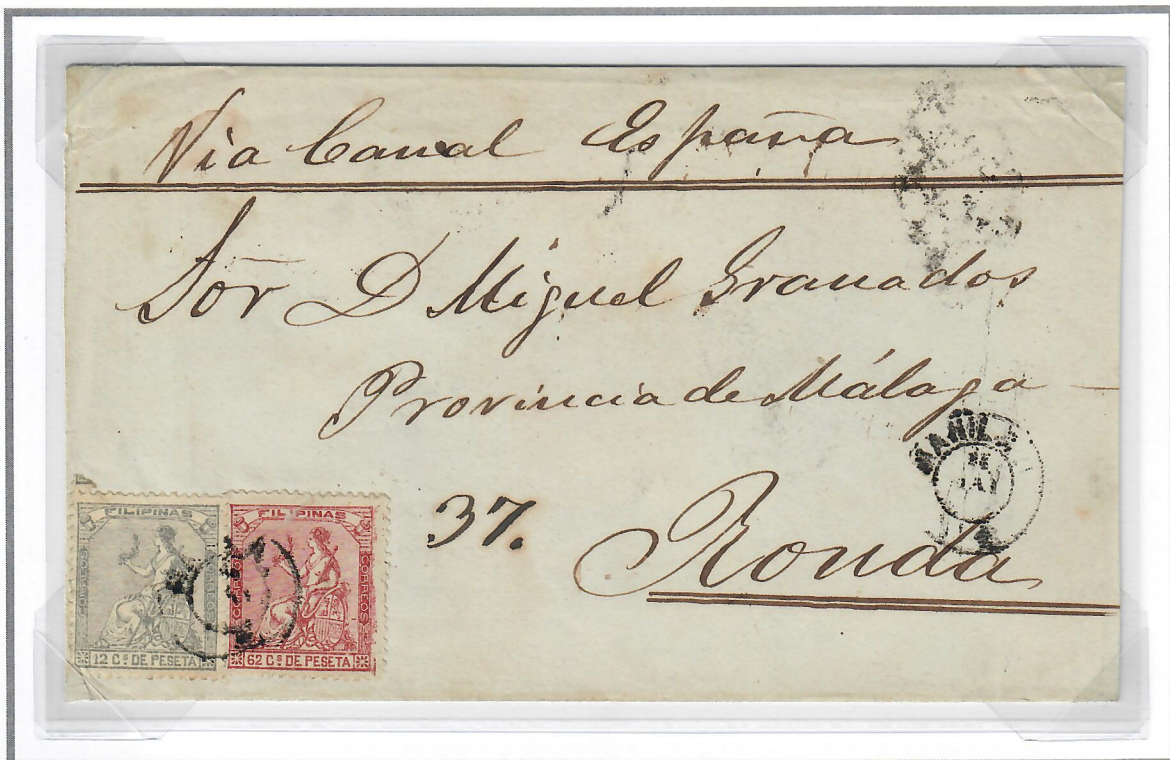 Via Canal España
Sor D Miguel Granados
Provincia de Málaga
MANILA
37.
Ronda
FILIPINAS
CORREOS
12 Cs DE PESETA
FILIPINAS
CORREOS
CORREOS
62 Cs DE PESETA